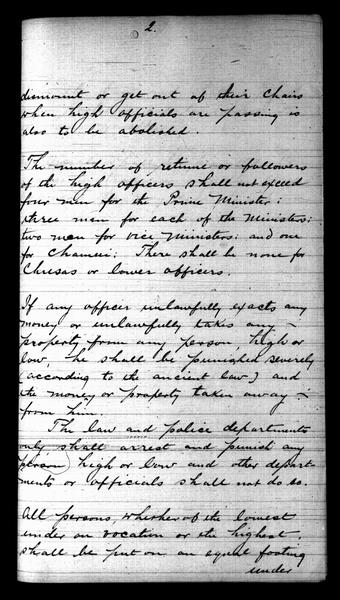 2.
dismount or get out of their Chairs
when high officials are passing is
also to be abolished.
The number of retinue or followers
of the high officers shall not exceed
four men for the Prime Minister:
three men for each of the Ministers:
two men for vice Ministers: and one
for Chanui; There shall be none for
Chusas or lower officers.
If any officer unlawfully exacts any
money or unlawfully takes any
property from any person, high or
low, he shall be punished severely
(according to the ancient law) and
the money or property taken away
from him.
The law and police departments
only shall arrest and punish any
person) high or low and other depart-
ments or officials shall not do so.
All persons, whether of the lowest
under on vocation or the highest,
shall be put on an equal footing
under